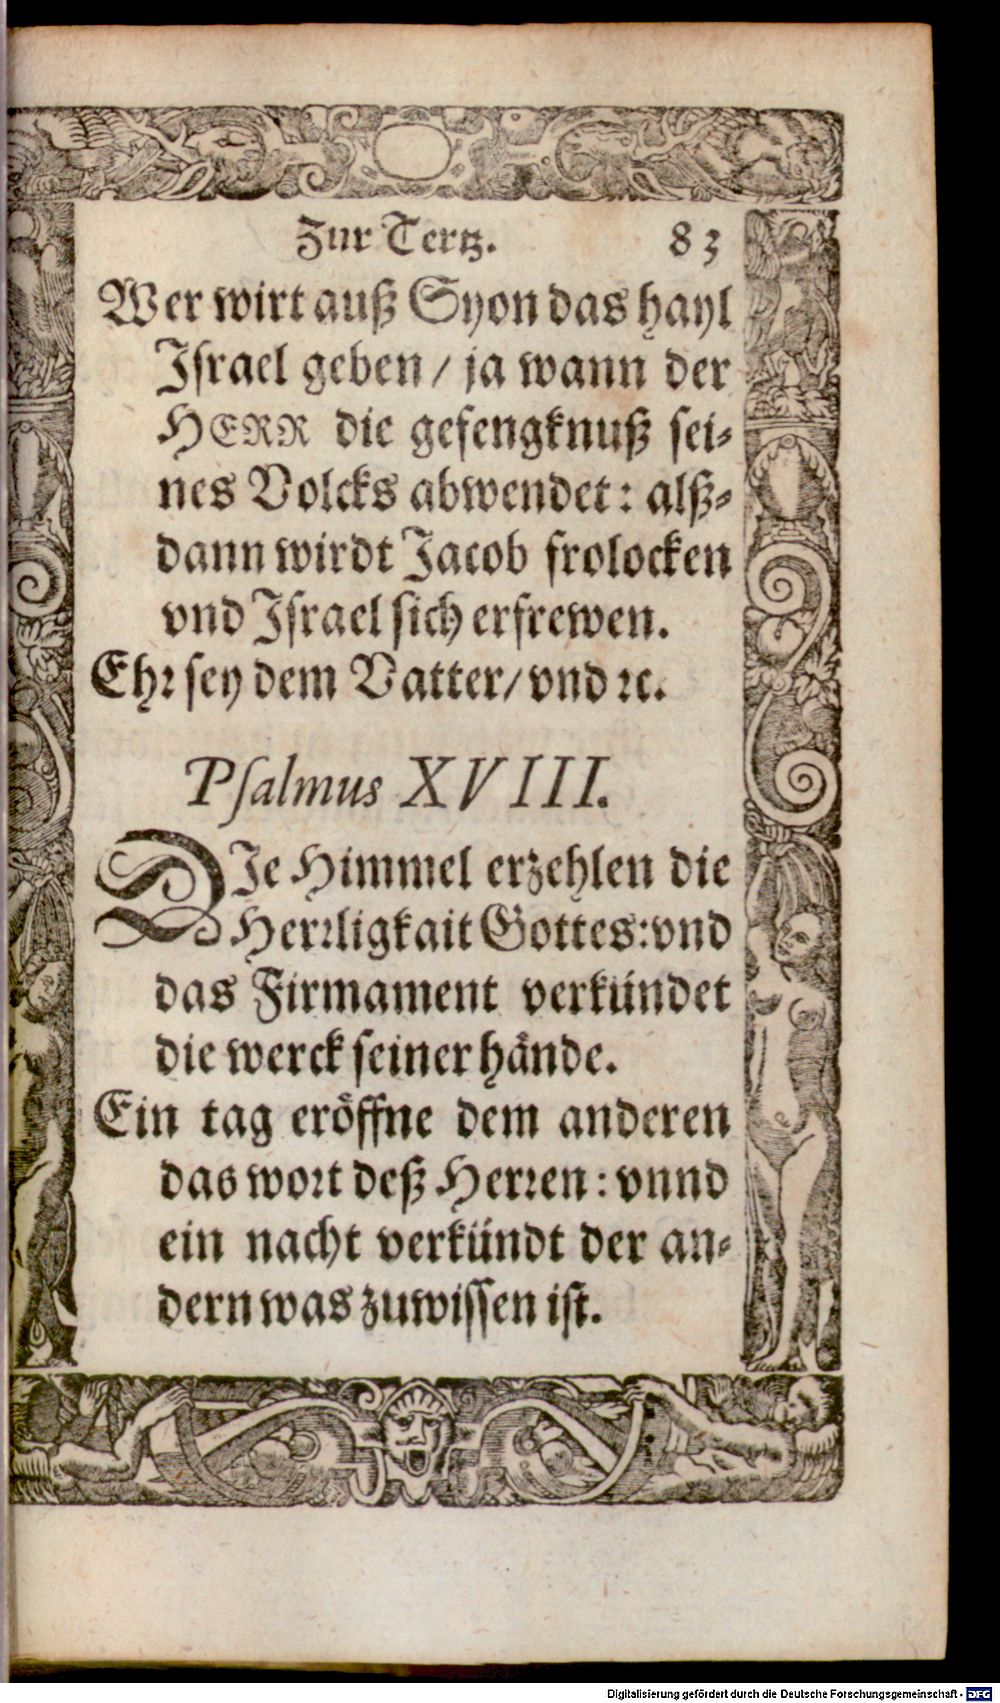 Zur Tertz. 83
Wer wirt auß Syon das hayl
Israel geben / ja wann der
HERR die gefengknuß sei⸗
nes Volcks abwendet: alß⸗
dann wirdt Jacob frolocken
vnd Israel sich erfrewen.
Ehr sey dem Vatter / vnd ꝛc.
Psalmus XVIII.
DIe Himmel erzehlen die
Herrligkait Gottes: vnd
das Firmament verkündet
die werck seiner hände.
Ein tag eröffne dem anderen
das wort deß Herren: vnnd
ein nacht verkündt der an⸗
dern was zuwissen ist.
Digitalisierung gefördert durch die Deutsche Forschungsgemeinschaft - DFG